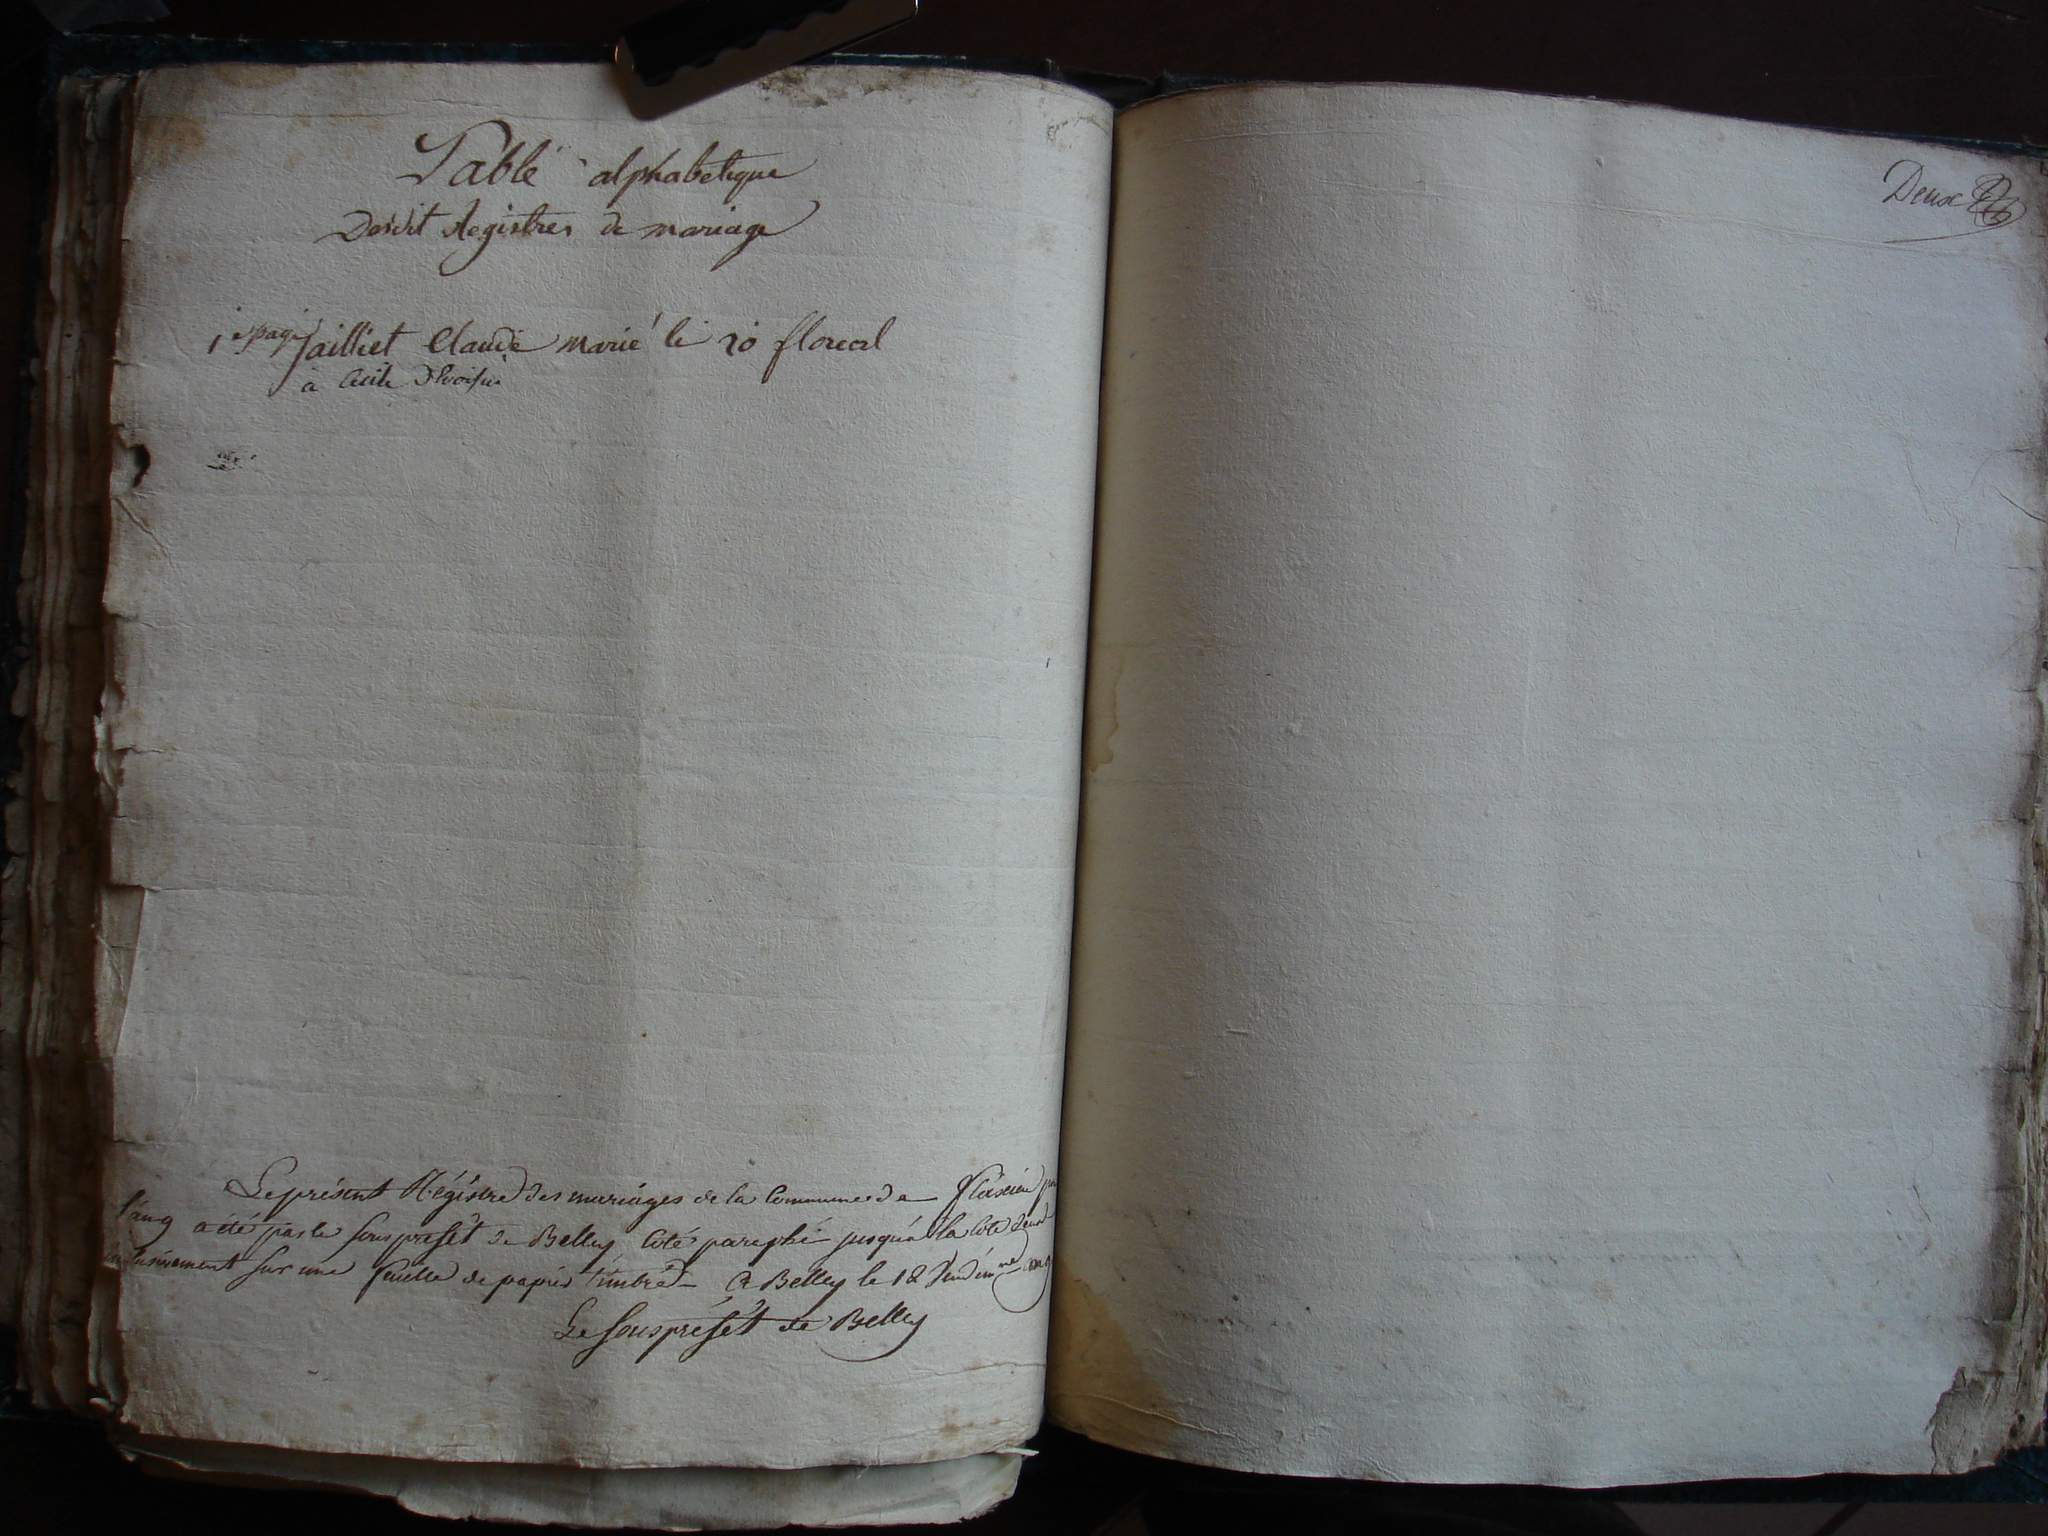 Table alphabetique
Desdit Registres de mariage
1e page Jailliet Claude marié le 20 floreal
à Cecile
Le présent Régistre des mariages de la Commune de flaxieu pr
l'an 9 a été par le souspréfét de Belley Coté paraphé jusqu'à la cote deux
inclusivement sur une feuille de papier timbré - A Belley le 18 Vendém.re an 9
Le souspréfét de Belley
Deux